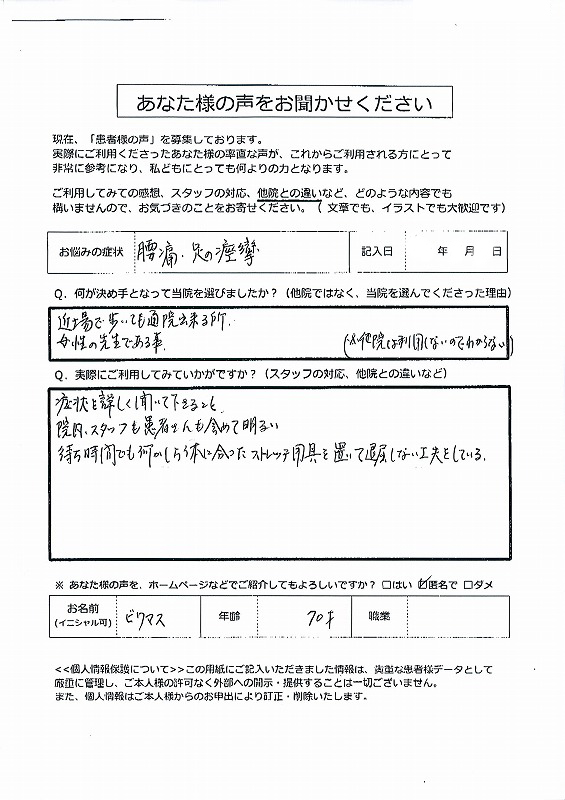 あなた様の声をお聞かせください
現在、「患者様の声」を募集しております。
実際にご利用くださったあなた様の率直な声が、これからご利用される方にとって
非常に参考になり、私どもにとっても何よりの力となります。
ご利用してみての感想、スタッフの対応、他院との違いなど、どのような内容でも
構いませんので、お気づきのことをお寄せください。（ 文章でも、イラストでも大歓迎です）
お悩みの症状 腰痛、足の痙攣 記入日 年 月 日
Q．何が決め手となって当院を選びましたか？（他院ではなく、当院を選んでくださった理由）
近場で歩いても通院出来る所．
女性の先生である事． (※他院は利用しないのでわからない)
Q．実際にご利用してみていかがですか？（スタッフの対応、他院との違いなど）
症状を詳しく聞いて下さること
院内、スタッフも患者さんも含めて明るい
待ち時間でも何かしら体に合ったストレッチ用具を置いて退屈しない工夫をしている．
※ あなた様の声を、ホームページなどでご紹介してもよろしいですか？ □はい ☑匿名で □ダメ
お名前 ビワマス 年齢 70才 職業
(イニシャル可)
<<個人情報保護について>>この用紙にご記入いただきました情報は、貴重な患者様データとして
厳重に管理し、ご本人様の許可なく外部への開示・提供することは一切ございません。
また、個人情報はご本人様からのお申出により訂正・削除いたします。